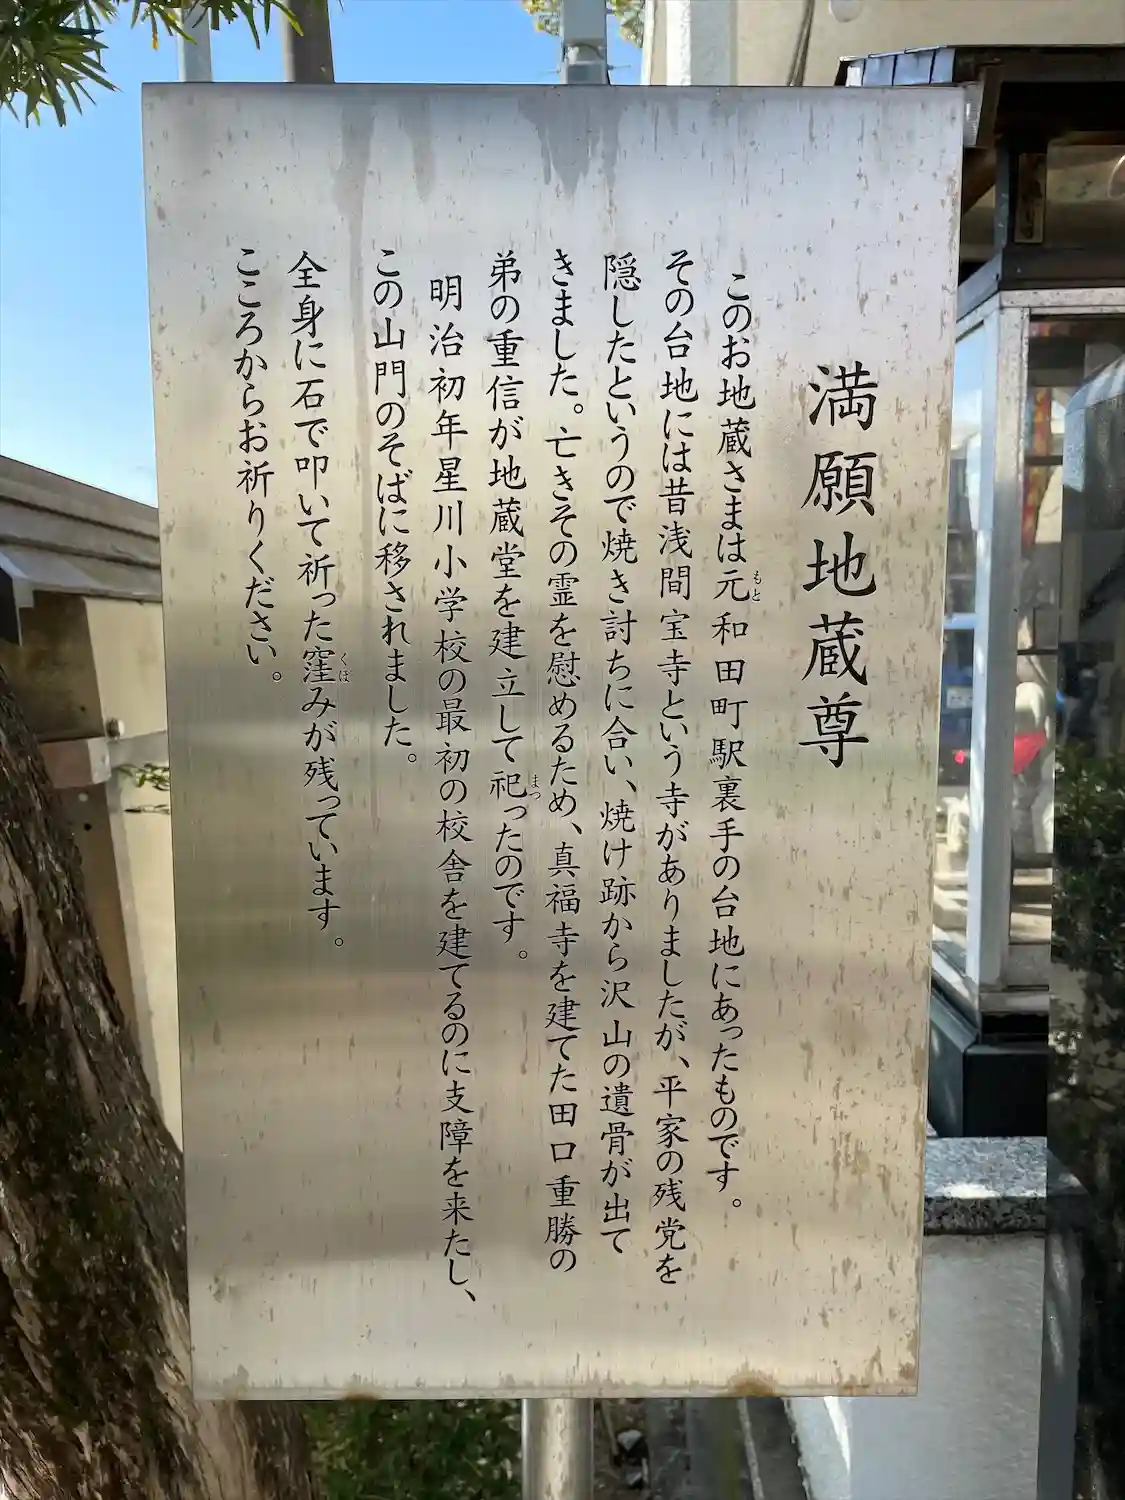 満願地蔵尊
このお地蔵さまは元和田町駅裏手の台地にあったものです。
その台地には昔浅間宝寺という寺がありましたが、平家の残党を
隠したというので焼き討ちに合い、焼け跡から沢山の遺骨が出て
きました。亡きその霊を慰めるため、真福寺を建てた田口重勝の
弟の重信が地蔵堂を建立して祀ったのです。
明治初年星川小学校の最初の校舎を建てるのに支障を来たし、
この山門のそばに移されました。
全身に石で叩いて祈った窪みが残っています。
こころからお祈りください。
もと
まつ
くぼ